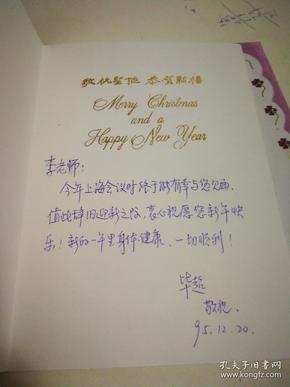 敬祝聖誕 恭賀新禧
Merry Christmas
and a
Happy New Year
李老师:
今年上海会议时终于能有幸与您见面.
值此辞旧迎新之际,衷心祝愿您新年快
乐!新的一年里身体健康、一切顺利!
毕超
敬贺
95.12.20.
孔夫子旧书网